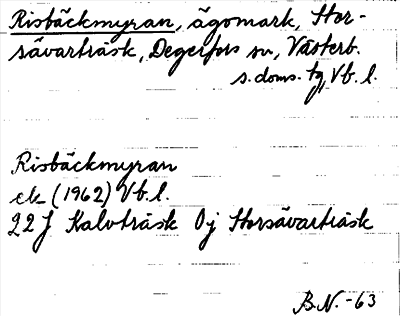 Risbäckmyran, ägomark, Stor-
sävarträsk, Degerfors sn, Västerb.
s. doms. tg, Vb. l.
Risbäckmyran
ek (1962) Vb. l.
22 J Kalvträsk 0j Storsävarträsk
B.N. -63